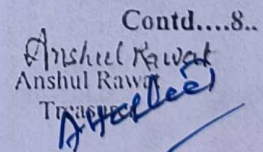 Contd....8..
Anshul Rawat
Anshul Rawat
Treasurer
Attested